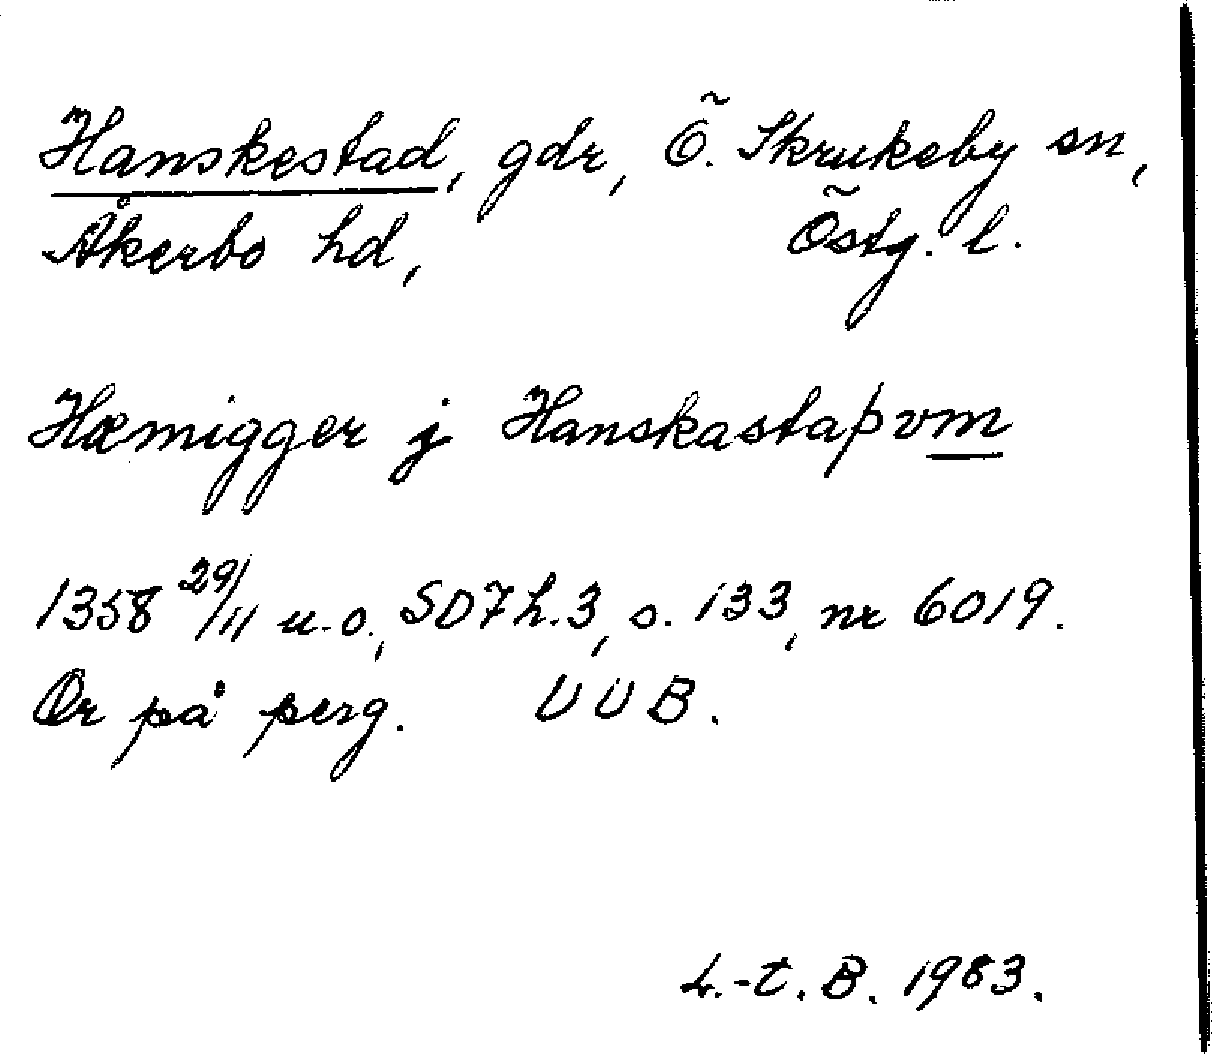 Hanskestad, gdr, Ö. Skrukeby sn,
Åkerbo hd, Östg. l.
Hæmigger j Hanskastaþvm
1358 29/11 u.o., SD7h.3, s. 133, nr 6019.
Or på perg. UUB.
L.-t. B. 1983.